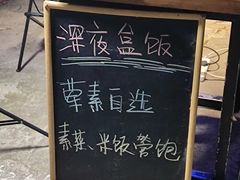 深夜盒饭
荤素自选
素菜、米饭管饱